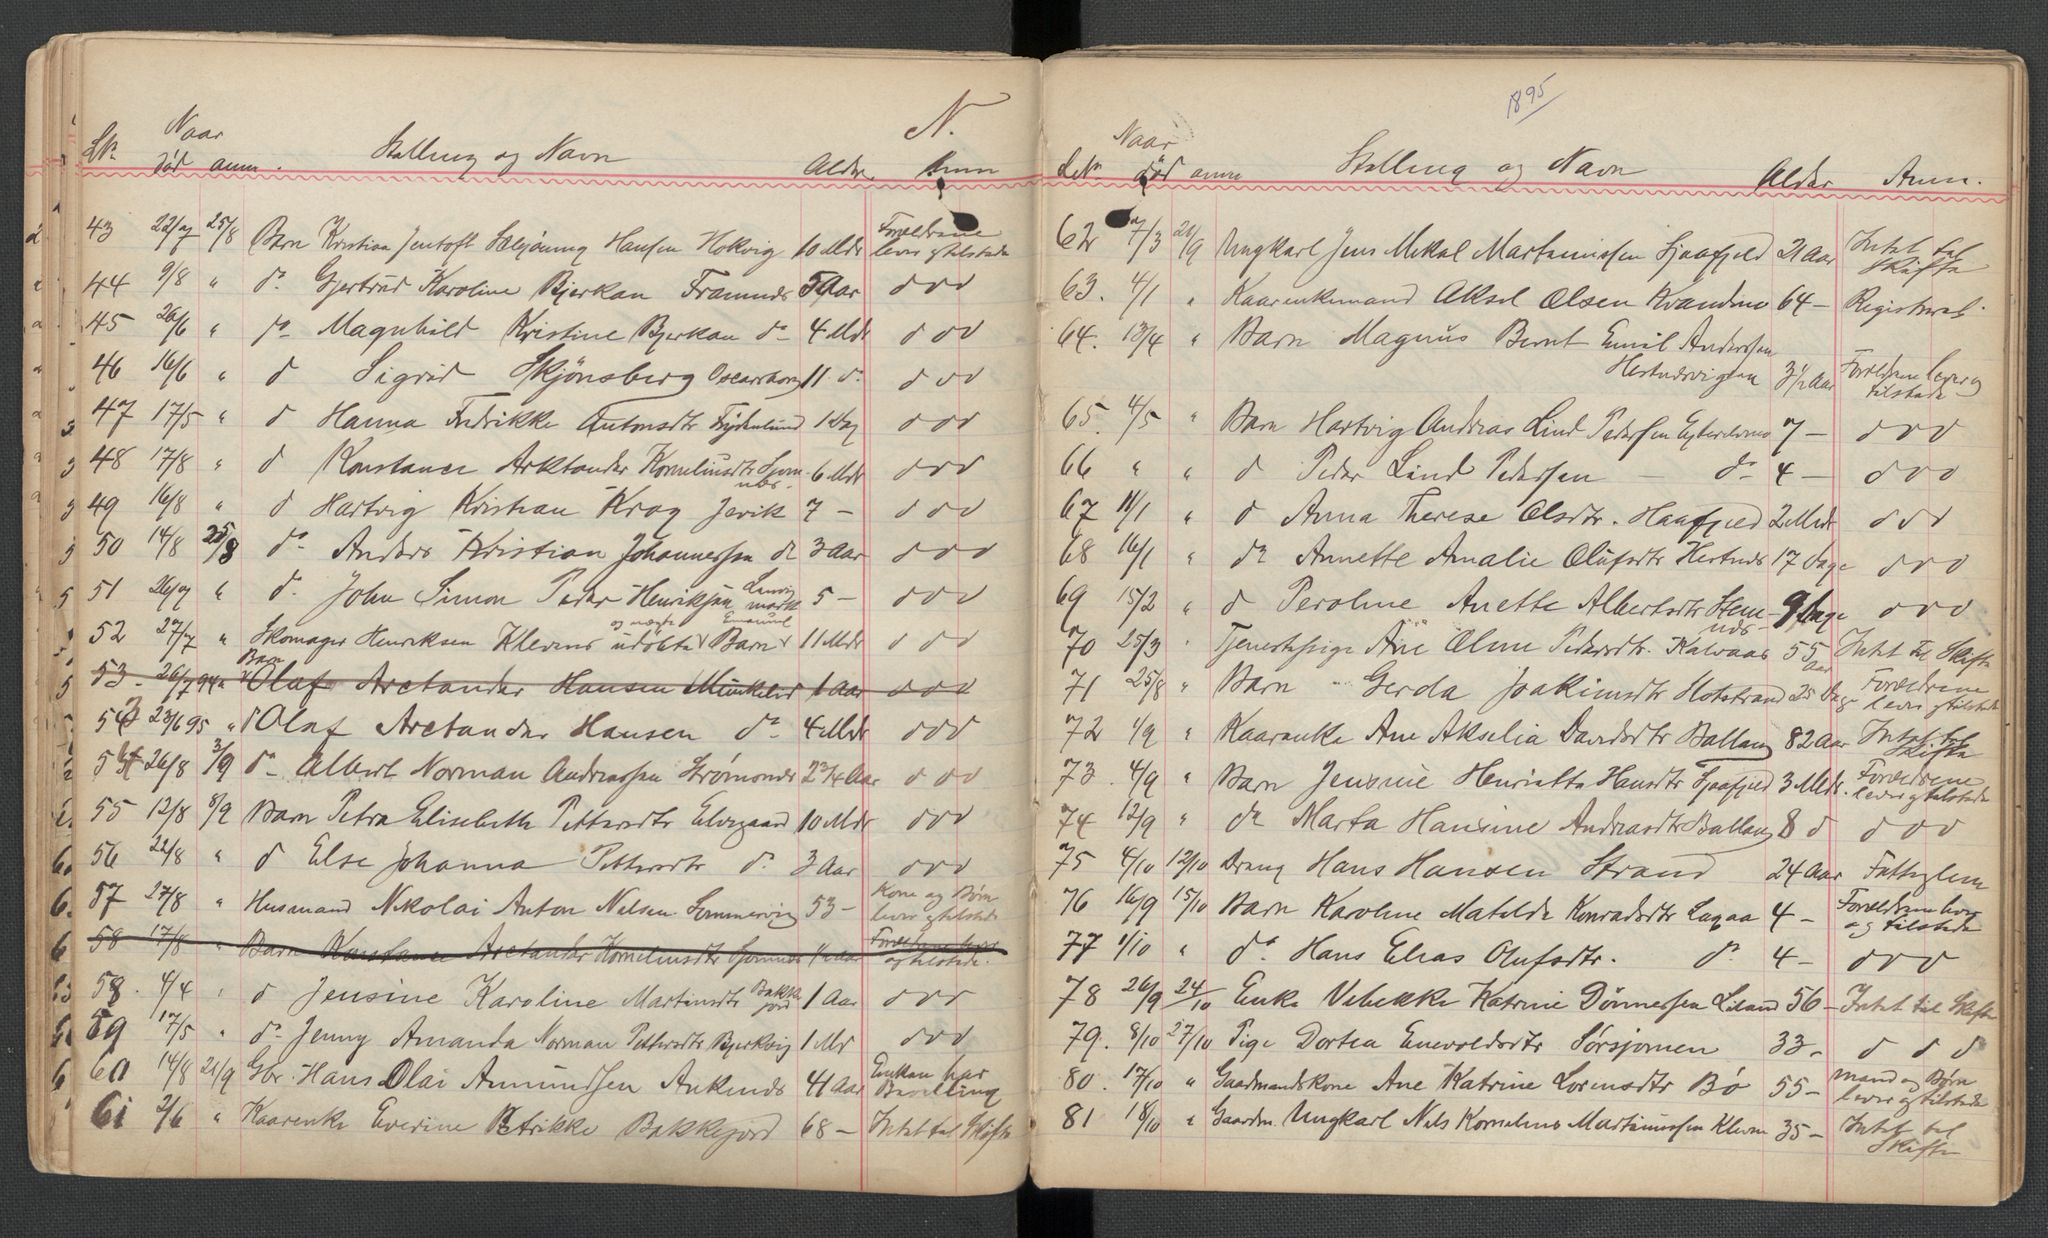 N.
Naar
LN. død anm. Stilling og Navn Alder Anm
43 22/7 25/8 Barn Kristian Jentoft Hansen Hokvig 10 Mdr Forældrene lever og tilstede
44 9/8 " do Gjertrud Karoline Bjerkan Framnæs 5 Aar d d d
45 26/6 " do Magnhild Kristine Bjerkan do 4 Mdr d d d
46 16/6 " d Sigrid Skjönsberg Oscarsborg 11 do d d d
47 17/5 " d Hanna Fredrikke Antonsdtr Frydenlund 1 Dag d d d
48 17/8 " d Konstance Arktander Korneliusdtr 6 Mdr d d d
49 16/8 " d Hartvig Kristian Krog 7 - d d d
50 14/8 25/8 do Anders Kristian Johannessen d 3 Aar d d d
51 26/7 " do John Simon Peder Henriksen 5 - d d d
52 27/7 " Skomager Henriksen Klevens udöbte Barn 11 Mdr d d d
og Emanuel
53 26/7 94 " Barn Olaf Arctander Hansen 1 Aar d d d
53 23/6 95 " d Olaf Arctander Hansen do 4 Mdr d d d
54 26/8 3/9 do Albert Norman Andreassen Strømsnæs 2 3/4 Aar d d d
55 12/8 8/9 Barn Petra Elisebeth Pettersdtr Elvegaard 10 Mdr d d d
56 22/8 " d Else Johanna Pettersdtr do 3 Aar d d d
57 27/8 " Husmand Nikolai Anton Nilsen Sommervig 53 - Kone og Børn lever og tilstede
58 17/8 " Barn Konstance Arctander Korneliusdtr 1/2 Aar Forældrene lever og tilstede.
58. 4/4 " d Jensine Karoline Martinsdtr Bakkejord 1 Aar d d d
59 17/5 " do Jenny Amanda Norman Pettersdtr Bjerkvig 1 Md d d d
60 14/8 21/9 Gbr. Hans Olai Amundsen Ankenæs 41 Aar Enken har Bevilling
61 2/6 " Kaarenke Everine Petrikke Bakkejord 68 - Intet til Skifte
1895
Naar
LNo død anm Stilling og Navn Alder Anm.
62 7/3 21/9 Ungkarl Jens Mikal Martinussen 21 Aar Intet til Skifte
63. 4/1 " Kaarenkemand Aksel Olsen Kvandmo 64 - Registreret.
64. 13/4 " Barn Magnus Bernt Emil Anderssen
3 1/2 Aar Forældrene lever og tilstede
65. 4/5 " Barn Hartvig Andreas Lind Pedersen 7 - d d d
66 " " d Peder Lind Pedersen - do 4 - d d d
67 11/1 " d Anna Therese Olsdtr. Haafjeld 2 Mdr d d d
68 16/1 " do Annette Amalie Olufsdtr Hertnæs 17 Dage d d d
69 15/2 " d Peroline Anette Albertsdtr 9 Dage d d d
70 25/3 " Tjenestepige Ane Oline Pedersdtr. Kalvaas 55 Aar Intet til Skifte
71 25/8 " Barn Gerda Joakimsdtr Hotstrand 25 Dage Forældrene lever og tilstede
72 1/9 " Kaarenke Ane Akselia Davidsdtr Ballang 82 Aar Intet til Skifte
73. 4/9 " Barn Jensine Henriette Hansdtr 3 Mdr. Forældrene lever og tilstede
74 12/9 " do Marta Hansine Andreasdtr Ballang 8 d d d d
75 4/10 12/10 Dreng Hans Hansen Strand 24 Aar Fattiglem
76 16/9 15/10 Barn Karoline Matilde Konradsdtr Lagaa 4 - Forældrene lever og tilstede
77 1/10 " do Hans Elias Olufsdtr. do 4 - d d d
78 26/9 24/10 Enke Vibekke Katrine Dønnessen Liland 56 - Intet til Skifte
79. 8/10 27/10 Pige Dortea Enevoldsdtr Sørsjomen 33 - d d d
80. 17/10 " Gaardmandskone Ane Katrine Lorensdtr Bø 55 - mand og Børn lever og tilstede
81 18/10 " Gaardm. Ungkarl Nils Kornelius Martinussen Kleven 35 - Intet til Skifte